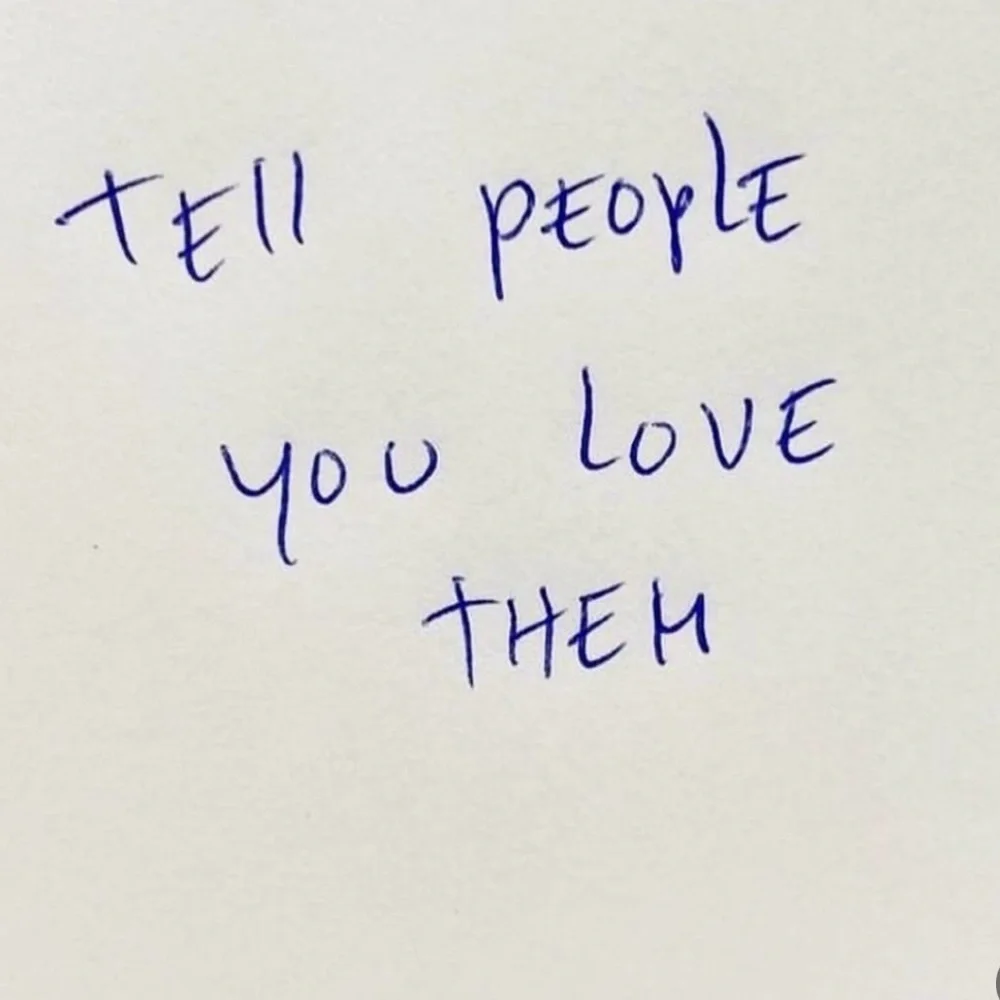 TELL PEOPLE
YOU LOVE
THEM